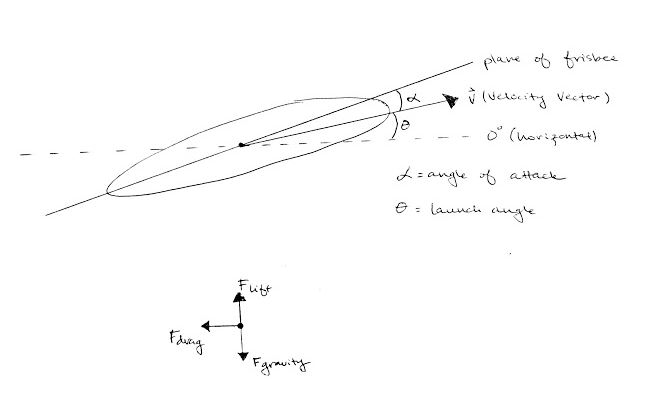 plane of frisbee
α
v⃗ (Velocity Vector)
θ
0° (horizontal)
α = angle of attack
θ = launch angle
Flift
Fdrag
Fgravity